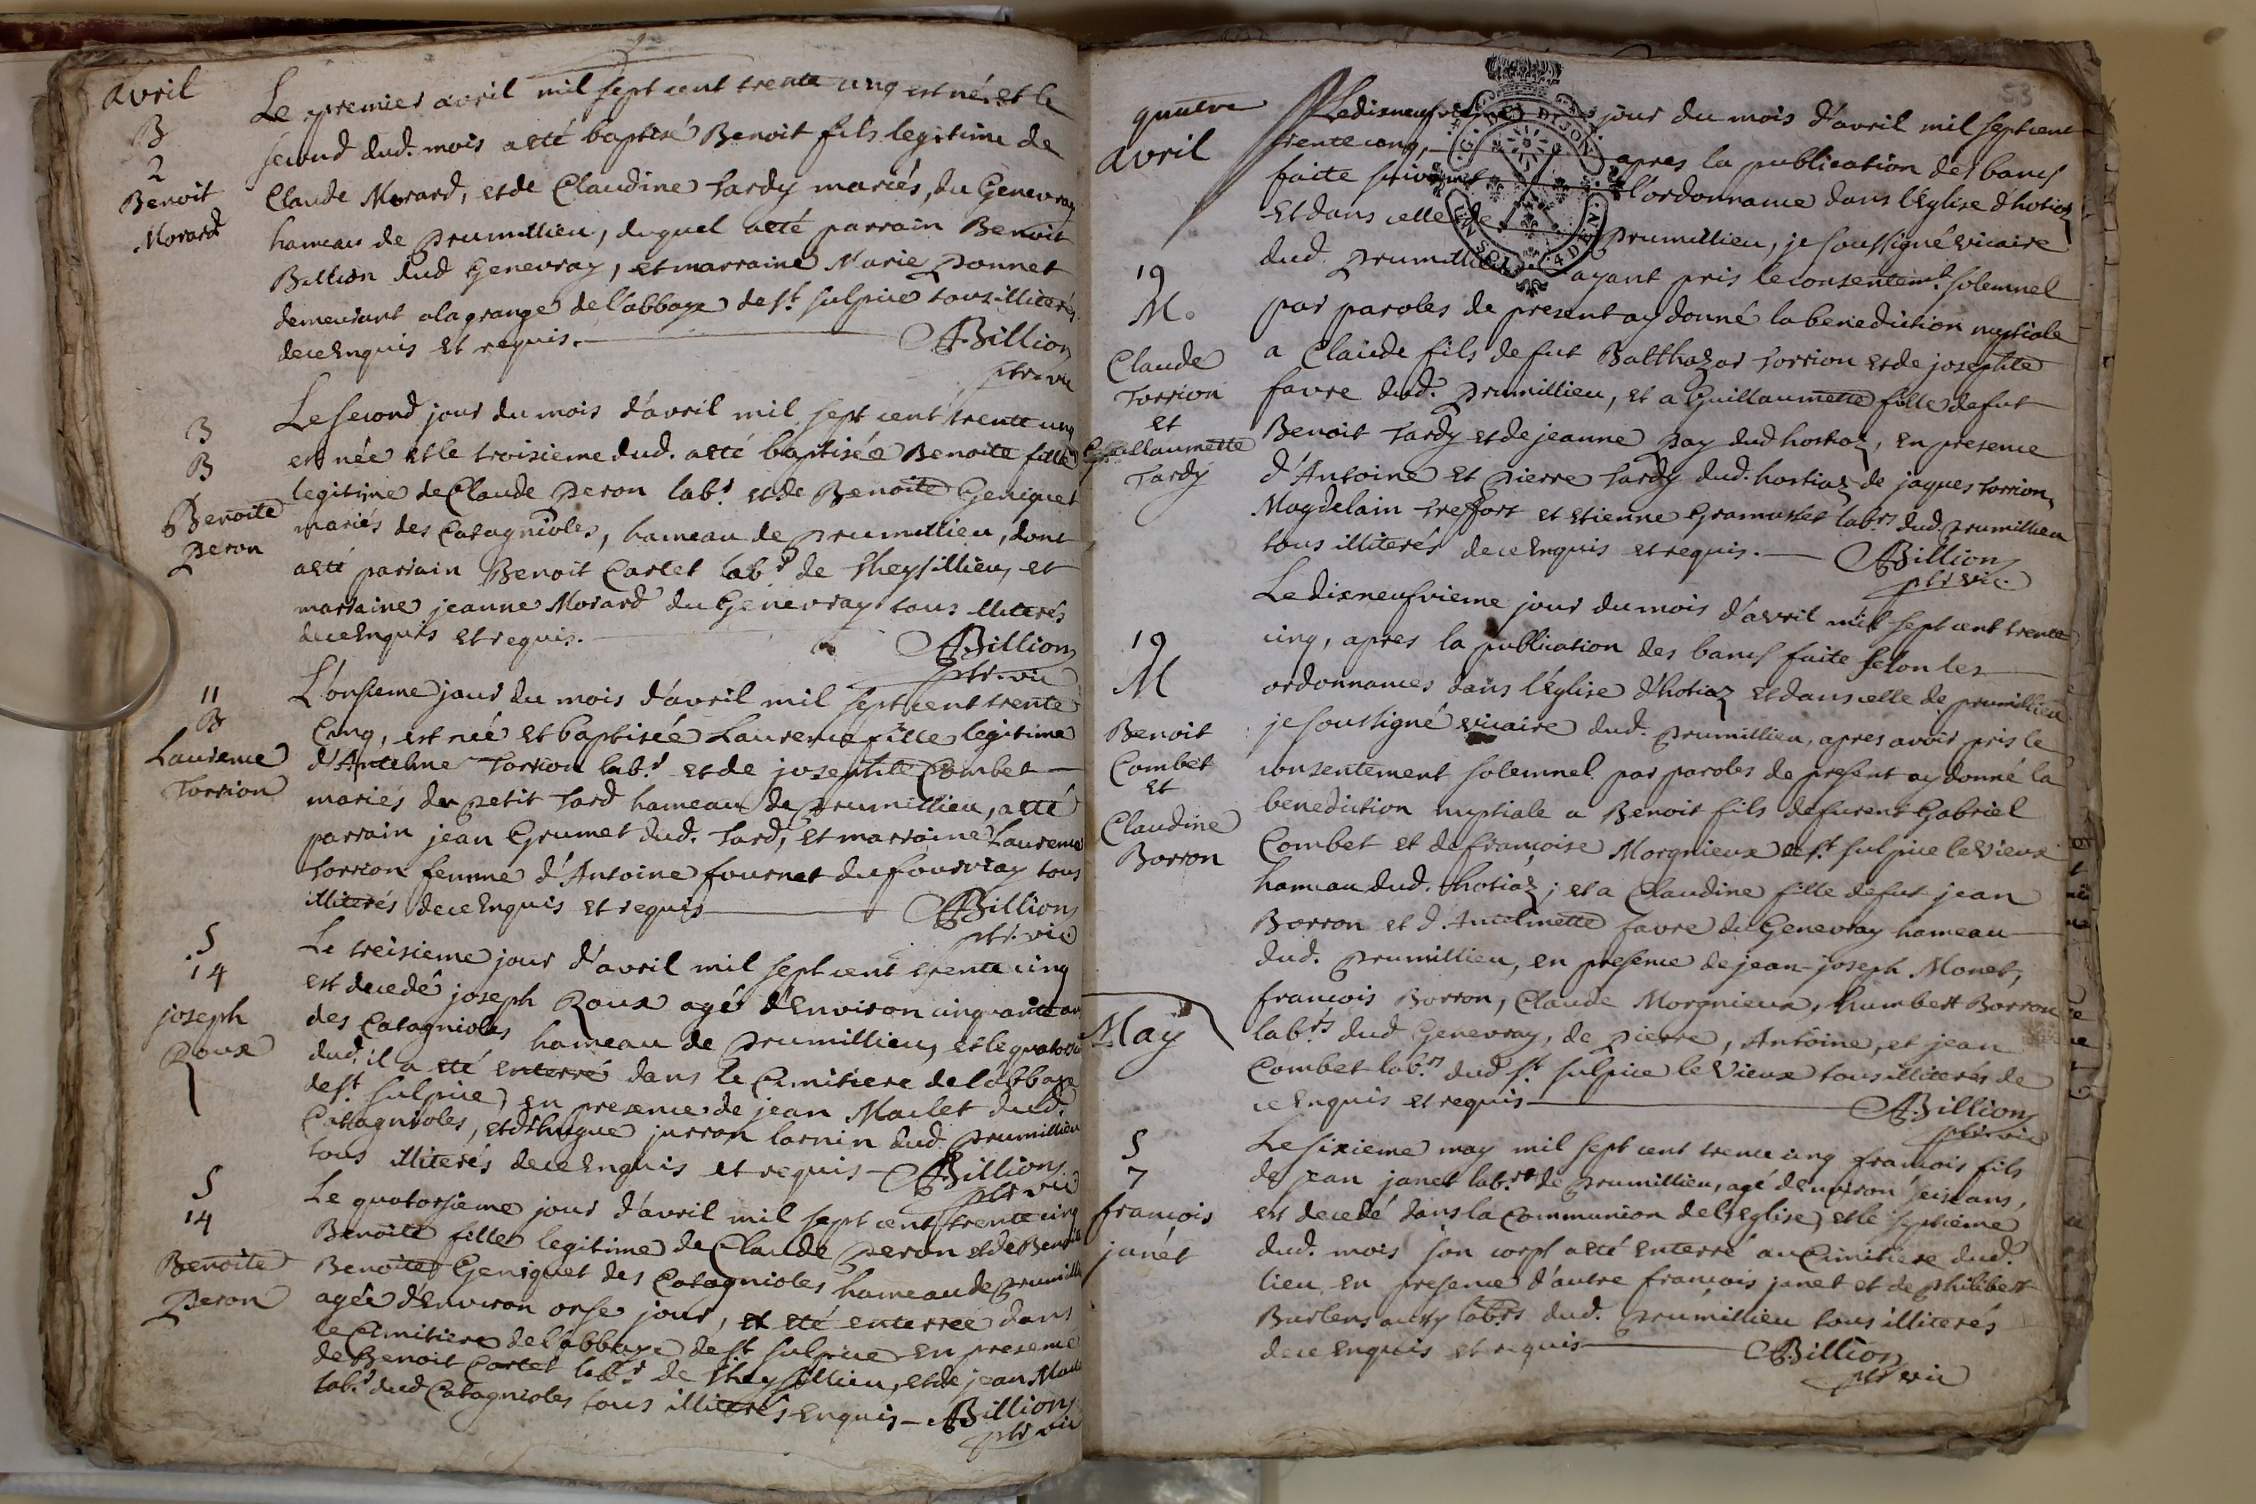 avril
B
2
Benoit
Morard
Le premier avril mil sept cent trente cinq est né, et le
second dud. mois a eté baptisé Benoit fils legitime de
Claude Morard, et de Claudine Tardy mariés, du Genevray
hameau de Prumillieu, duquel a eté parrain Benoit
Billion dud Genevray, et marraine Marie Ponnet
demeurant a la grange de l'abbaye de st. sulpice tous illiterés
de ce Enquis et requis.
Billion
ptre vic
3
B
Benoite
Peron
Le second jour du mois d'avril mil sept cent trente cinq
est née et le troisieme dud. a eté baptisée Benoite fille
legitime de Claude Peron labr. et de Benoite Geniquet
mariés des Catagnioles, hameau de Prumillieu, dont
a eté parrain Benoit Cartet labr. de Theysillieu, et
marraine jeanne Morard du Genevray tous illiterés
de ce Enquis et requis.
Billion
ptre vic
11
B
Laurence
Torrion
L'onsieme jour du mois d'avril mil sept cent trente
Cinq, est née et baptisée Laurence fille legitime
d'Antelme Torrion labr. et de josephte Combet
mariés du petit Tard hameau de Prumillieu, a eté
parrain jean Grumet dud. Tard, et marraine Laurence
Torrion femme d'Antoine fournet du fourvray tous
illiterés de ce Enquis et requis
Billion
ptre vic
S
14
joseph
Roux
Le treisieme jour d'avril mil sept cent trente cinq
est decedé joseph Roux agé d'Environ cinquante ans
des Catagnioles hameau de Prumillieu, et le quatorsie
dud. il a eté enterré dans le Cimitiere de l'abbaye
de st. sulpice, en presence de jean Maclet dud.
Catagnioles, et d'hugue jurron dud Prumillieu
tous illiterés de ce Enquis et requis
Billion
ptre vic
S
14
Benoite
Peron
Le quatorsieme jour d'avril mil sept cent trente cinq
Benoite fille legitime de Claude Peron et de Benoite
Benoite Geniquet des Catagnioles hameau de Prumillie
agée d'Environ onse jour, a eté enterrée dans
le Cimitiere de l'abbaye de st. sulpice en presence
de Benoit Cartet labr. de Theysillieu, et de jean Macle
labr. dud Catagnioles tous illiterés Enquis
Billion
ptre vic
quatre
avril
19
M.
Claude
Torrion
et
Guillaumette
Tardy
Le disneufvieme jour du mois d'avril mil sept cent
trente cinq, apres la publication des bancs
faite suivant l'ordonnance dans l'Eglise d'hotiaz
Et dans celle de Prumillieu, je soussigné vicaire
dud. Prumillieu ayant pris le consentemt. solemnel
par paroles de present ay donné la benediction nuptiale
a Claude fils de fut Balthazar Torrion et de josephte
favre dud. Prumillieu, et a Guillaumette fille de fut
Benoit Tardy et de jeanne Pay dud hostiaz, en presence
d'Antoine et Pierre Tardy dud. hostiaz de jaques Torrion,
Magdelain treffort et Etienne Gramuset labrs. dud. Prumillieu
tous illiterés de ce Enquis et requis.
Billion
ptre vic.
19
M
Benoit
Combet
et
Claudine
Borron
Le disneufvieme jour du mois d'avril mil sept cent trente
cinq, apres la publication des bancs faite selon les
ordonnances dans l'Eglise d'hotiaz et dans celle de prumillieu
je soussigné vicaire dud. Prumillieu, apres avoir pris le
consentement solemnel par paroles de present ay donné la
benediction nuptiale a Benoit fils de furent Gabriel
Combet et de francoise Morgnieux de st. sulpice le vieux
hameau dud. hotiaz; et a Claudine fille de fut jean
Borron et d'Antelmette favre du Genevray hameau
dud. Prumillieu, en presence de jean-joseph Monet,
francois Borron, Claude Morgnieux, humbert Borron
labrs dud Genevray, de Pierre, Antoine, et jean
Combet labrs dud st. sulpice le Vieux tous illiterés de
ce Enquis et requis
Billion
ptre vic
May
S
7
francois
janét
Le sixieme may mil sept cent trente cinq francois fils
de jean janet labr. de Prumillieu, agé d'Environ seis ans,
est decedé dans la Communion de l'Eglise, et le septieme
dud. mois son corps a eté enterré au Cimitiere dud.
lieu en presence d'autre francois janet et de Philibert
labrs dud. Prumillieu tous illiterés
de ce Enquis et requis
Billion
ptre vic